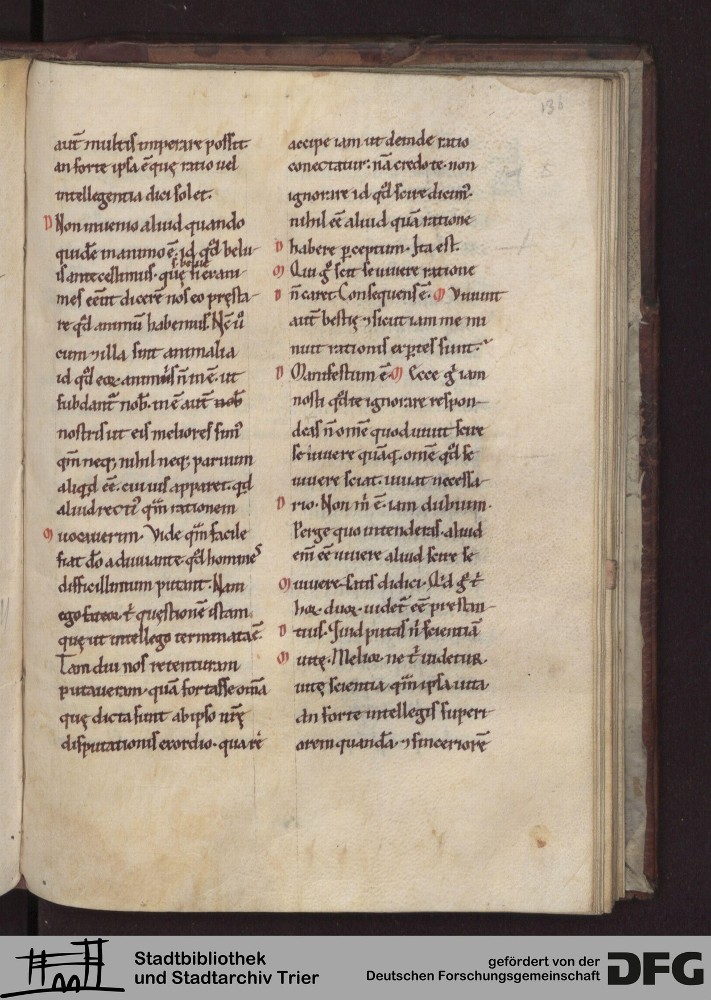 136
aut̄ multis imperare possit.
an forte ipsa ē quę ratio uel
intellegentia dici solet.
D Non inuenio aliud quando
quidē in animo ē. id qđ belu
is antecellimus. quę si exani
mes eēnt dicerē nos eo pręsta
re qđ animū habemus. Nc̄ ů
cum illa sint animalia
id qđ eor animis n̄ inē. ut
subdant nob. inē aut̄ nob
nostris ut eis meliores sim
qm̄ neq; nihil neq; paruum
aliqđ eē. cui uis apparet. qđ
aliud recti qm̄ rationem
M uocauerim. Vide qm̄ facile
fiat do adiuuante. qđ homines
difficillimum putant. Nam
ego fateor t̄ quęstionē istam
quę ut intellego terminata ē.
Tam diu nos retenturam
putaueram. quā fortasse om̄a
quę dicta sunt ab ipso nr̄ę
disputationis exordio. qua re
accipe iam ut deinde ratio
conectatur. nā credo te. non
ignorare id qđ scire dicim.
nihil eē aliud quā ratione
D habere pceptum. Ita est.
M Qui g scit se uiuere ratione
D n̄ caret. Consequens ē. M Viuunt
aut̄ bestię sicut iam me mi
nuit rationis expertes sunt.
D Manifestum ē. M Ecce g iam
nosti qđ te ignorare respon
deas n̄ om̄e quod uiuit scire
se uiuere quāq om̄e qđ se
uiuere sciat. uiuat necessa
D rio. Non m̄ ē. iam dubium.
Perge quo intenderas. aliud
em̄ eē uiuere aliud scire se
M uiuere. satis didici. Qđ g t̄
hor. duor. uidet̄ eē prestan
D tius. Quid putas n̄ scientiā
M uitę. Melior ne t̄ uidetur.
uitę scientia qm̄ ipsa uita
An forte intellegis superi
orem quandā. sinceriorē
Stadtbibliothek
und Stadtarchiv Trier
gefördert von der
Deutschen Forschungsgemeinschaft DFG